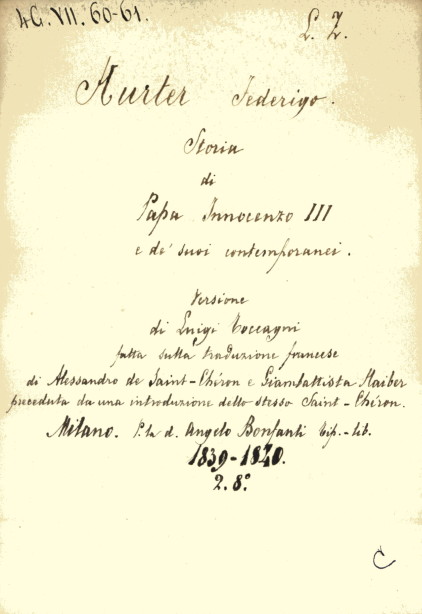 4G.VII.60-61.
L. Z.
Hurter Federigo.
Storia
di
Papa Innocenzo III
e de' suoi contemporanei.
Versione
di Luigi Toccagni
fatta sulla traduzione francese
di Alessandro de Saint-Chéron e Giambattista Haiber
preceduta da una introduzione dello stesso Saint-Chéron.
Milano. P. la d. Angelo Bonfanti tip.-lib.
1839-1840.
2. 8.°
C